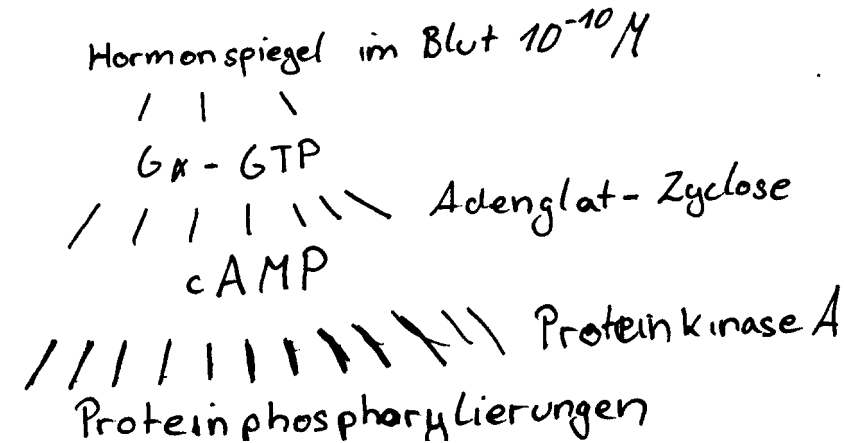 Hormonspiegel im Blut 10⁻¹⁰ M
Gα - GTP
Adenglat - Zyclose
cAMP
Proteinkinase A
Proteinphosphorylierungen